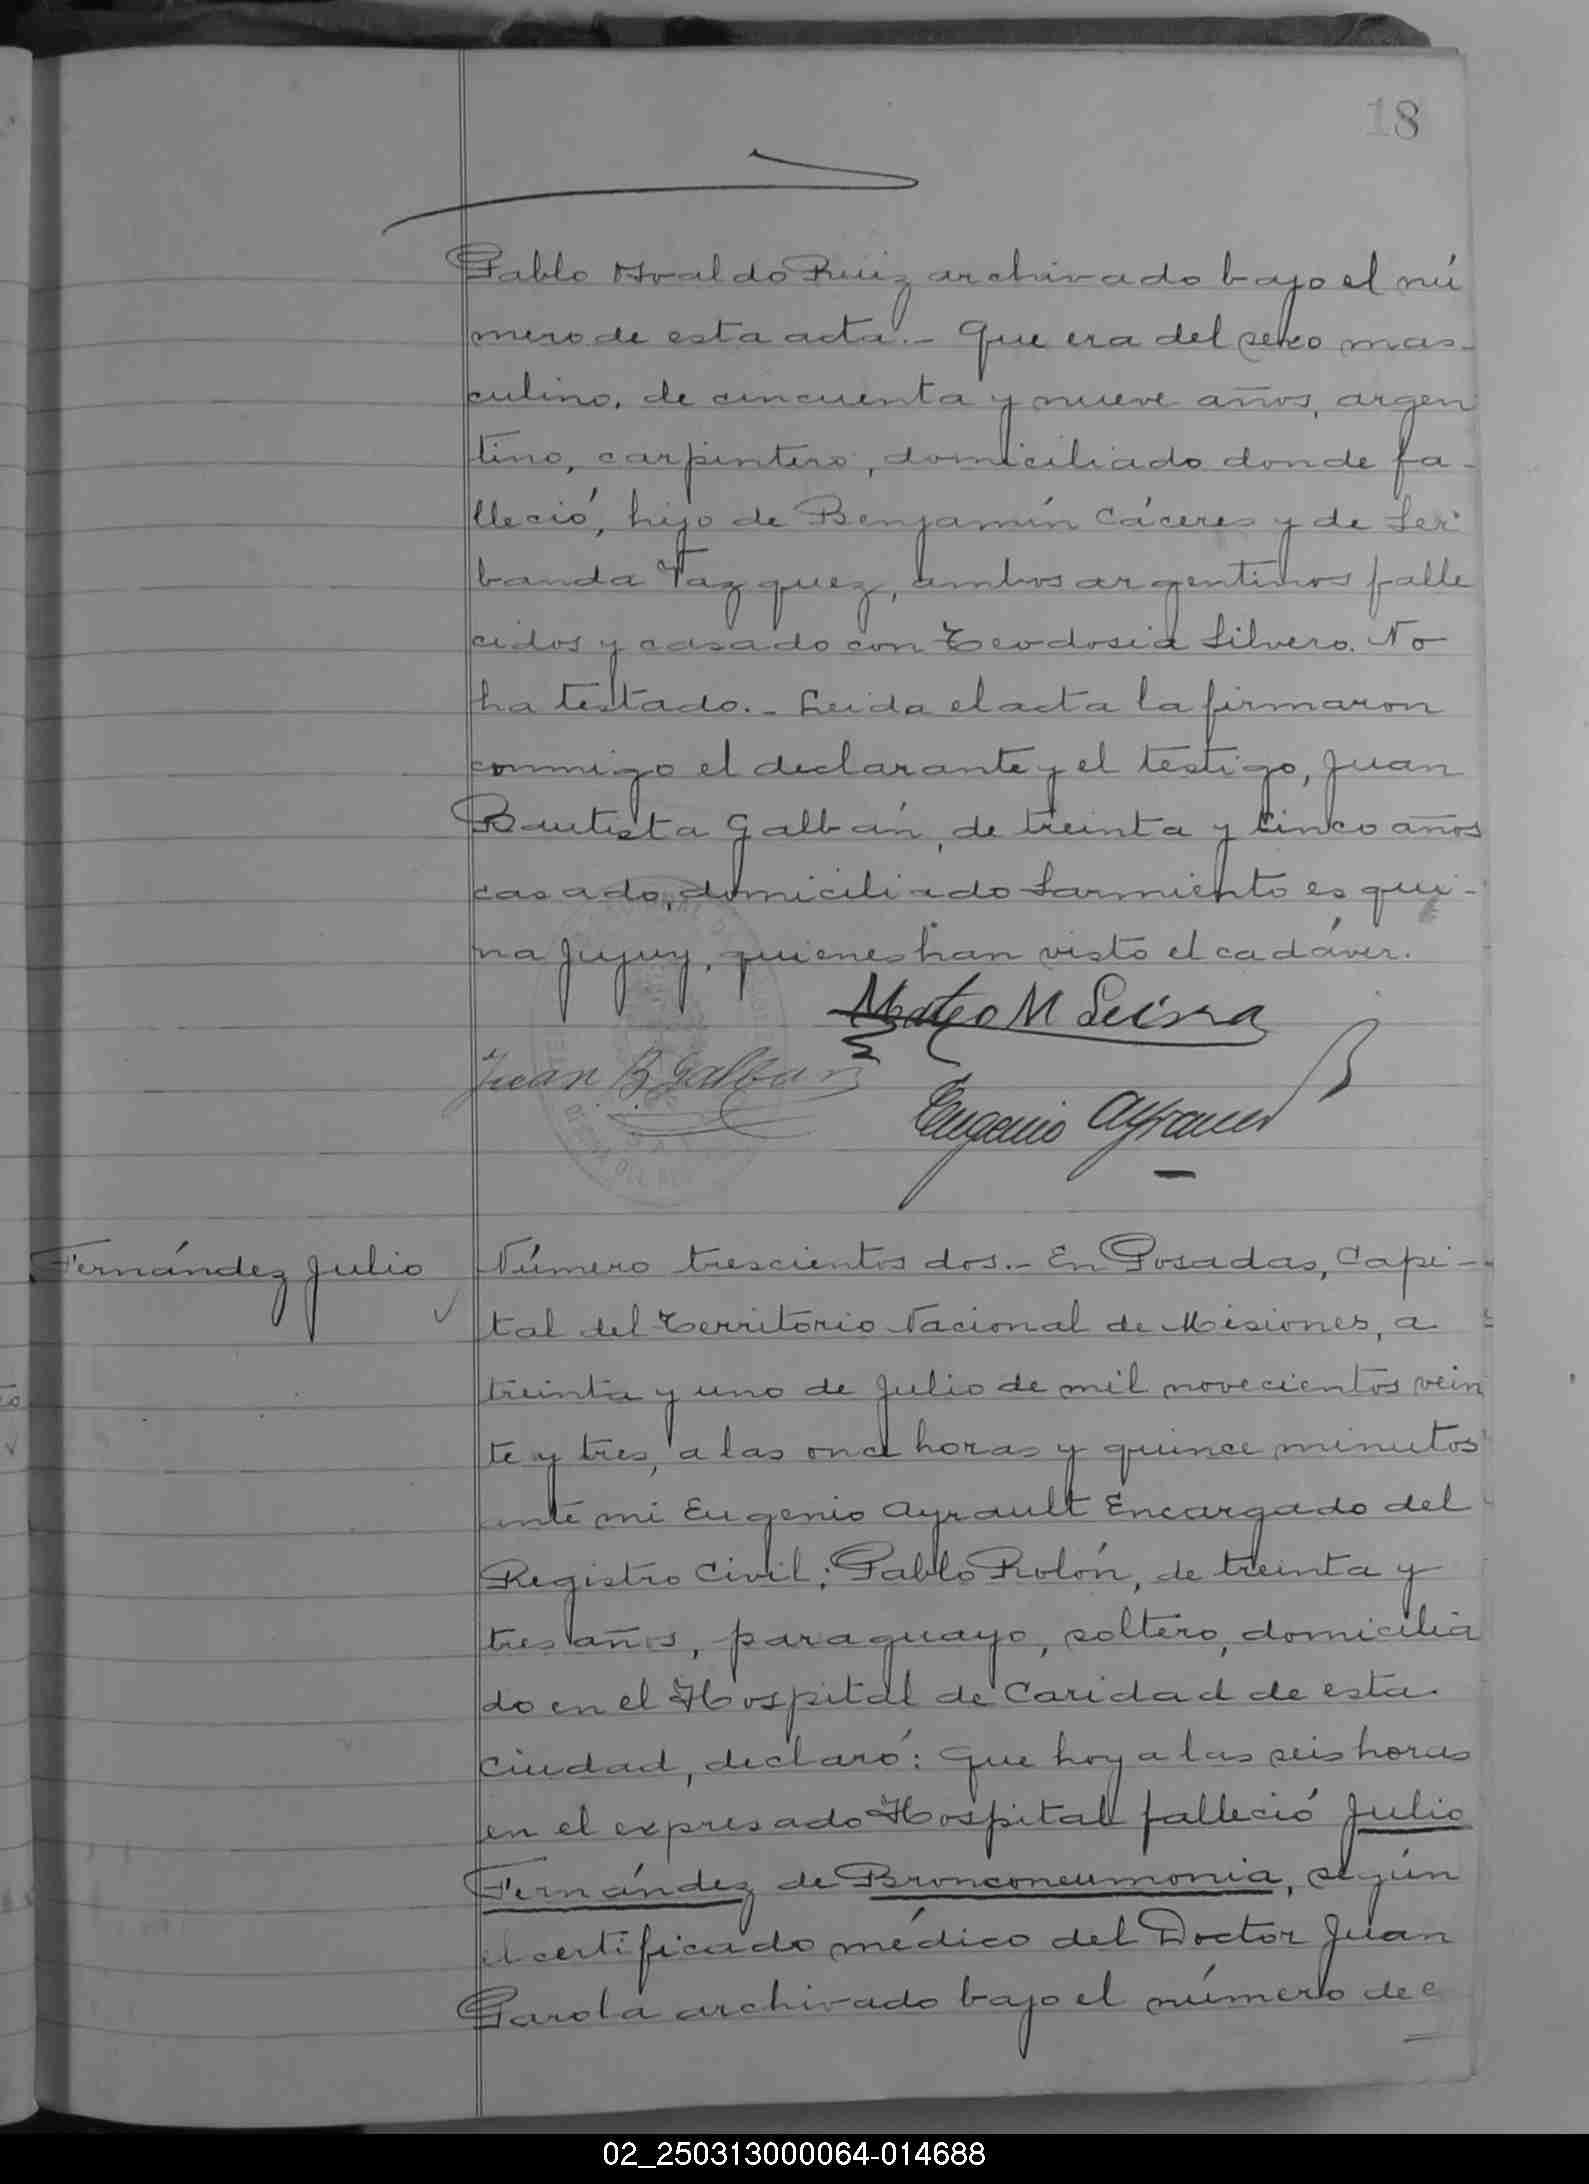 18
Pablo Osvaldo Ruiz archivado bajo el nú
mero de esta acta.- Que era del sexo mas-
culino, de cincuenta y nueve años, argen
tino, carpintero, domiciliado donde fa-
lleció, hijo de Benjamín Cáceres y de Ser
banda Vazquez, ambos argentinos falle
cidos y casado con Teodosia Silvero. No
ha testado.- Leida el acta la firmaron
conmigo el declarante y el testigo, Juan
Bautista Galbán, de treinta y cinco años
casado, domiciliado Sarmiento esqui-
na Jujuy, quienes han visto el cadáver.
Mateo M Seirra
Juan B. Galban
Eugenio Ayrault
Fernández Julio
Número trescientos dos.- En Posadas, Capi-
tal del Territorio Nacional de Misiones, a
treinta y uno de Julio de mil novecientos vein
te y tres, a las once horas y quince minutos
ante mi Eugenio Ayrault Encargado del
Registro Civil; Pablo Rolón, de treinta y
tres años, paraguayo, soltero, domicilia
do en el Hospital de Caridad de esta
Ciudad, declaró: Que hoy a las seis horas
en el expresado Hospital falleció Julio
Fernández de Bronconeumonia, según
el certificado médico del Doctor Juan
Garola archivado bajo el número de e
02_250313000064-014688